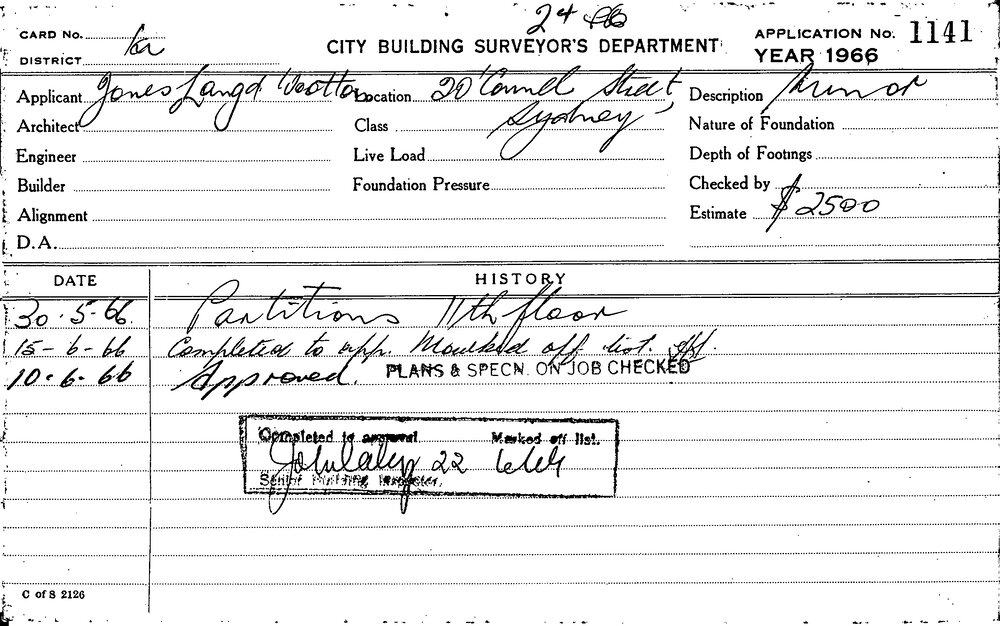 24
CARD No.
CITY BUILDING SURVEYOR'S DEPARTMENT
APPLICATION No. 1141
DISTRICT
YEAR 1966
Applicant Jones Lang Wootton Location 20'Connel Street, Description Minor
Architect Class Sydney Nature of Foundation
Engineer Live Load Depth of Footings
Builder Foundation Pressure Checked by
Alignment Estimate $2500
D.A.
DATE HISTORY
30.5.66 Partitions 11th floor
15-6-66 Completed to app. Marked off list.
10.6.66 Approved. PLANS & SPECN. ON JOB CHECKED
Completed to approval Marked off list.
22
Senior Building Inspector.
C of S 2126